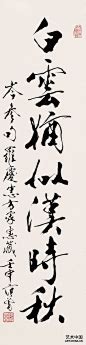 白雲猶似漢時秋
岑參句羅慶忠方家惠藏壬申
艺术中国